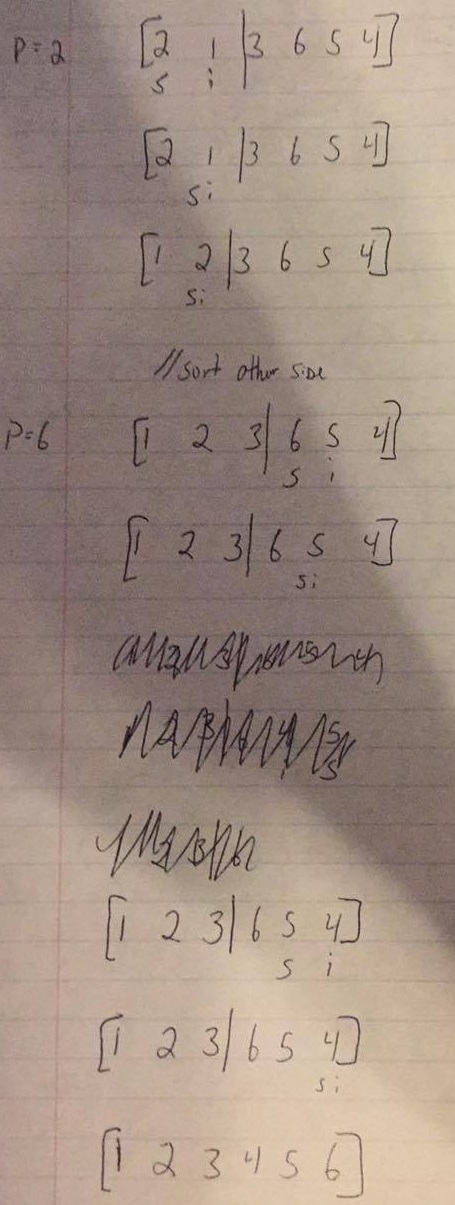 P=2 [2 1 | 3 6 5 4]
s i
[2 1 | 3 6 5 4]
si
[1 2 | 3 6 5 4]
si
// Sort other side
P=6 [1 2 3 | 6 5 4]
s i
[1 2 3 | 6 5 4]
si
[1 2 3 | 6 5 4]
s i
[1 2 3 | 6 5 4]
si
[1 2 3 4 5 6]